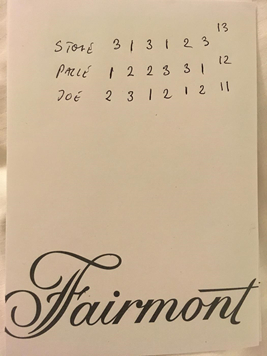 STONÉ 3 1 3 1 2 3 13
PALLÉ 1 2 2 3 3 1 12
JOÉ 2 3 1 2 1 2 11
Fairmont